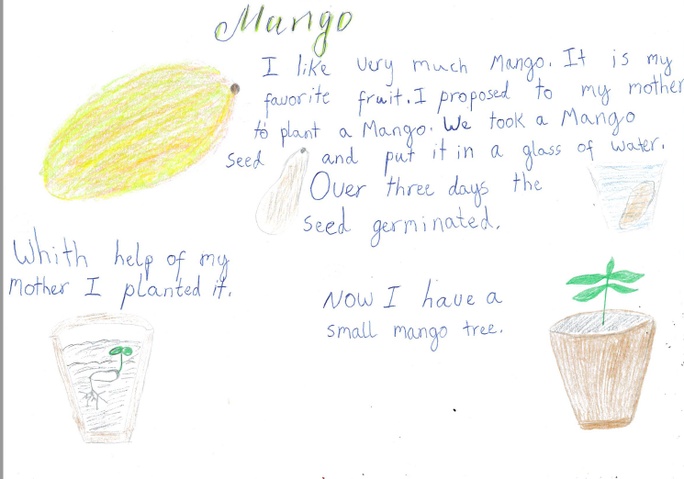 Mango
I like very much Mango. It is my
favorite fruit. I proposed to my mother
to plant a Mango. We took a Mango
seed and put it in a glass of water.
Over three days the
seed germinated.
Whith help of my
mother I planted it.
Now I have a
small mango tree.